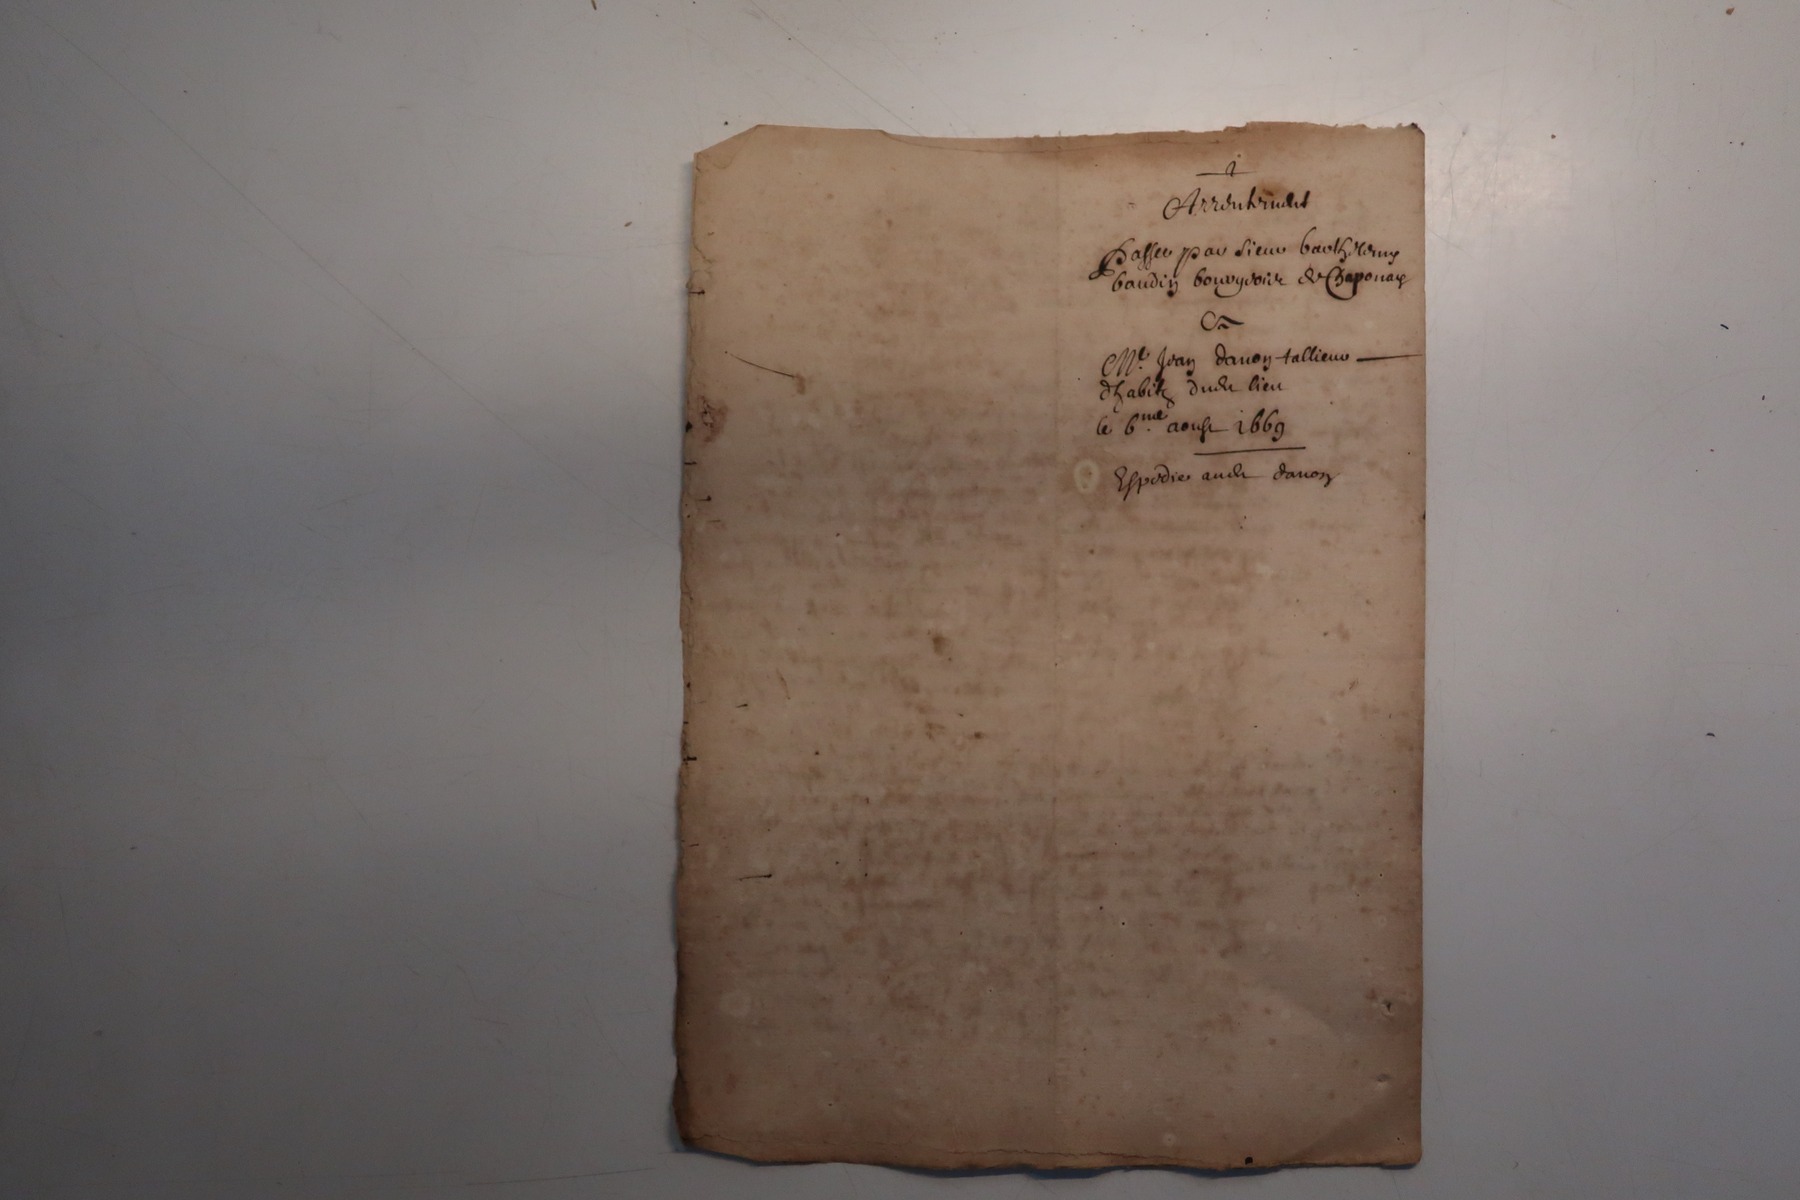 1
Arrentement
Passee par Sieur barthelemy
baudin bourgeois de Chaponay
A
Me. Jean danon tallieur
dhabitz dudt lieu
le 6me. aoust 1669
Expedie audt danon